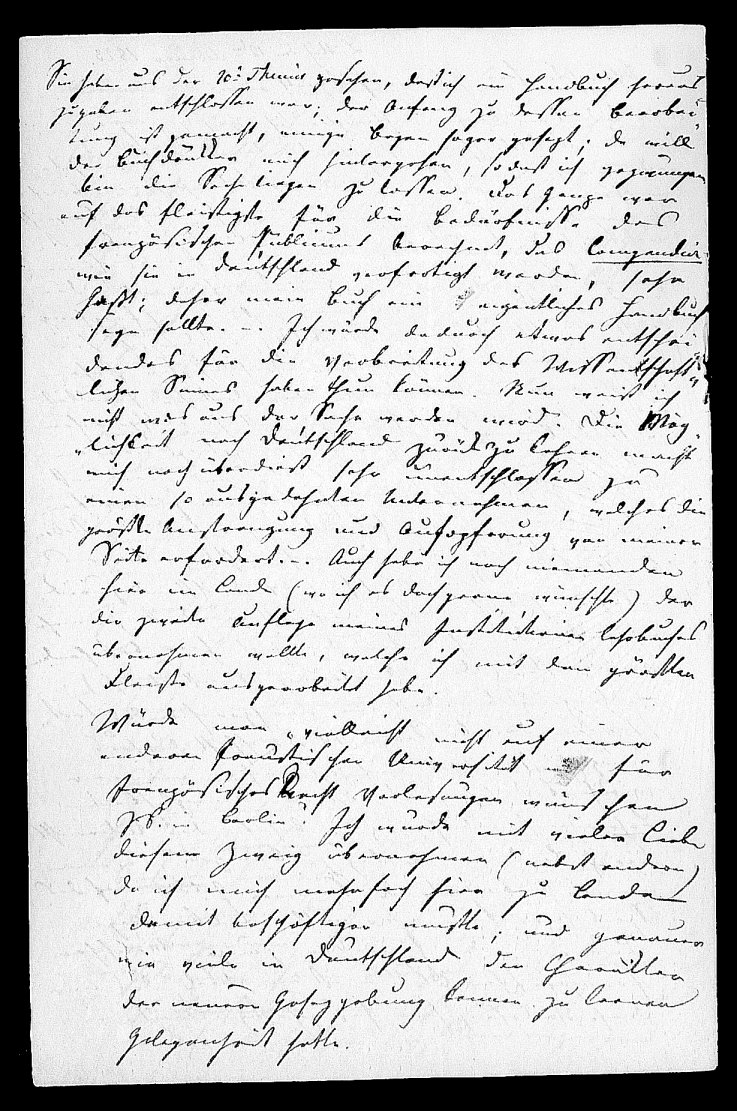 Sie haben aus der 10ᵗ Themis gesehen, daß ich ein Handbuch heraus
zugeben entschlossen war; der Anfang zu dessen Bearbei
tung ist gemacht, einige Bogen sogar gesezt; da will
der Buchdrukker mich hintergehen, so daß ich gezwungen
bin die Sache liegen zu lassen. Das Ganze war
auf das fleißigste für die Bedürfnisse des
französischen Publicums berechnet, das Compendien
wie sie in Deutschland verfertigt werden, sehr
haßt; daher mein Buch ein eigentliches Handbuch
seyn sollte. – Ich würde dadurch etwas entschei
dendes für die Verbreitung des Wissenschaft
lichen Sinnes haben thun können. Nun weiß ich
nicht was aus der Sache werden wird. Die Mög
lichkeit nach Deutschland zurückzukehren macht
mich noch überdieß sehr unentschlossen zu
einem so ausgedehnten Unternehmen, welches die
größte Anstrengung und Aufopferung von meiner
Seite erfordert. – Auch habe ich noch niemanden
hier im Lande (wo ich es doch gerne wünschte) der
die zweite Auflage meines Institutionen Lehrbuches
übernehmen wollte, welche ich mit dem größten
Fleiße ausgearbeitet habe.
Würde man vielleicht nicht auf einer
anderen Preussischen Universität für
französisches Recht Vorlesungen wünschen
zB. in Berlin? Ich würde mit vieler Liebe
diesen Zweig übernehmen (nebst andern)
da ich mich mehrfach hier zu Lande
damit beschäftigen mußte, und genauer
wie viele in Deutschland den Charakter
der neueren Gesezgebung kennen zu lernen
Gelegenheit hatte.